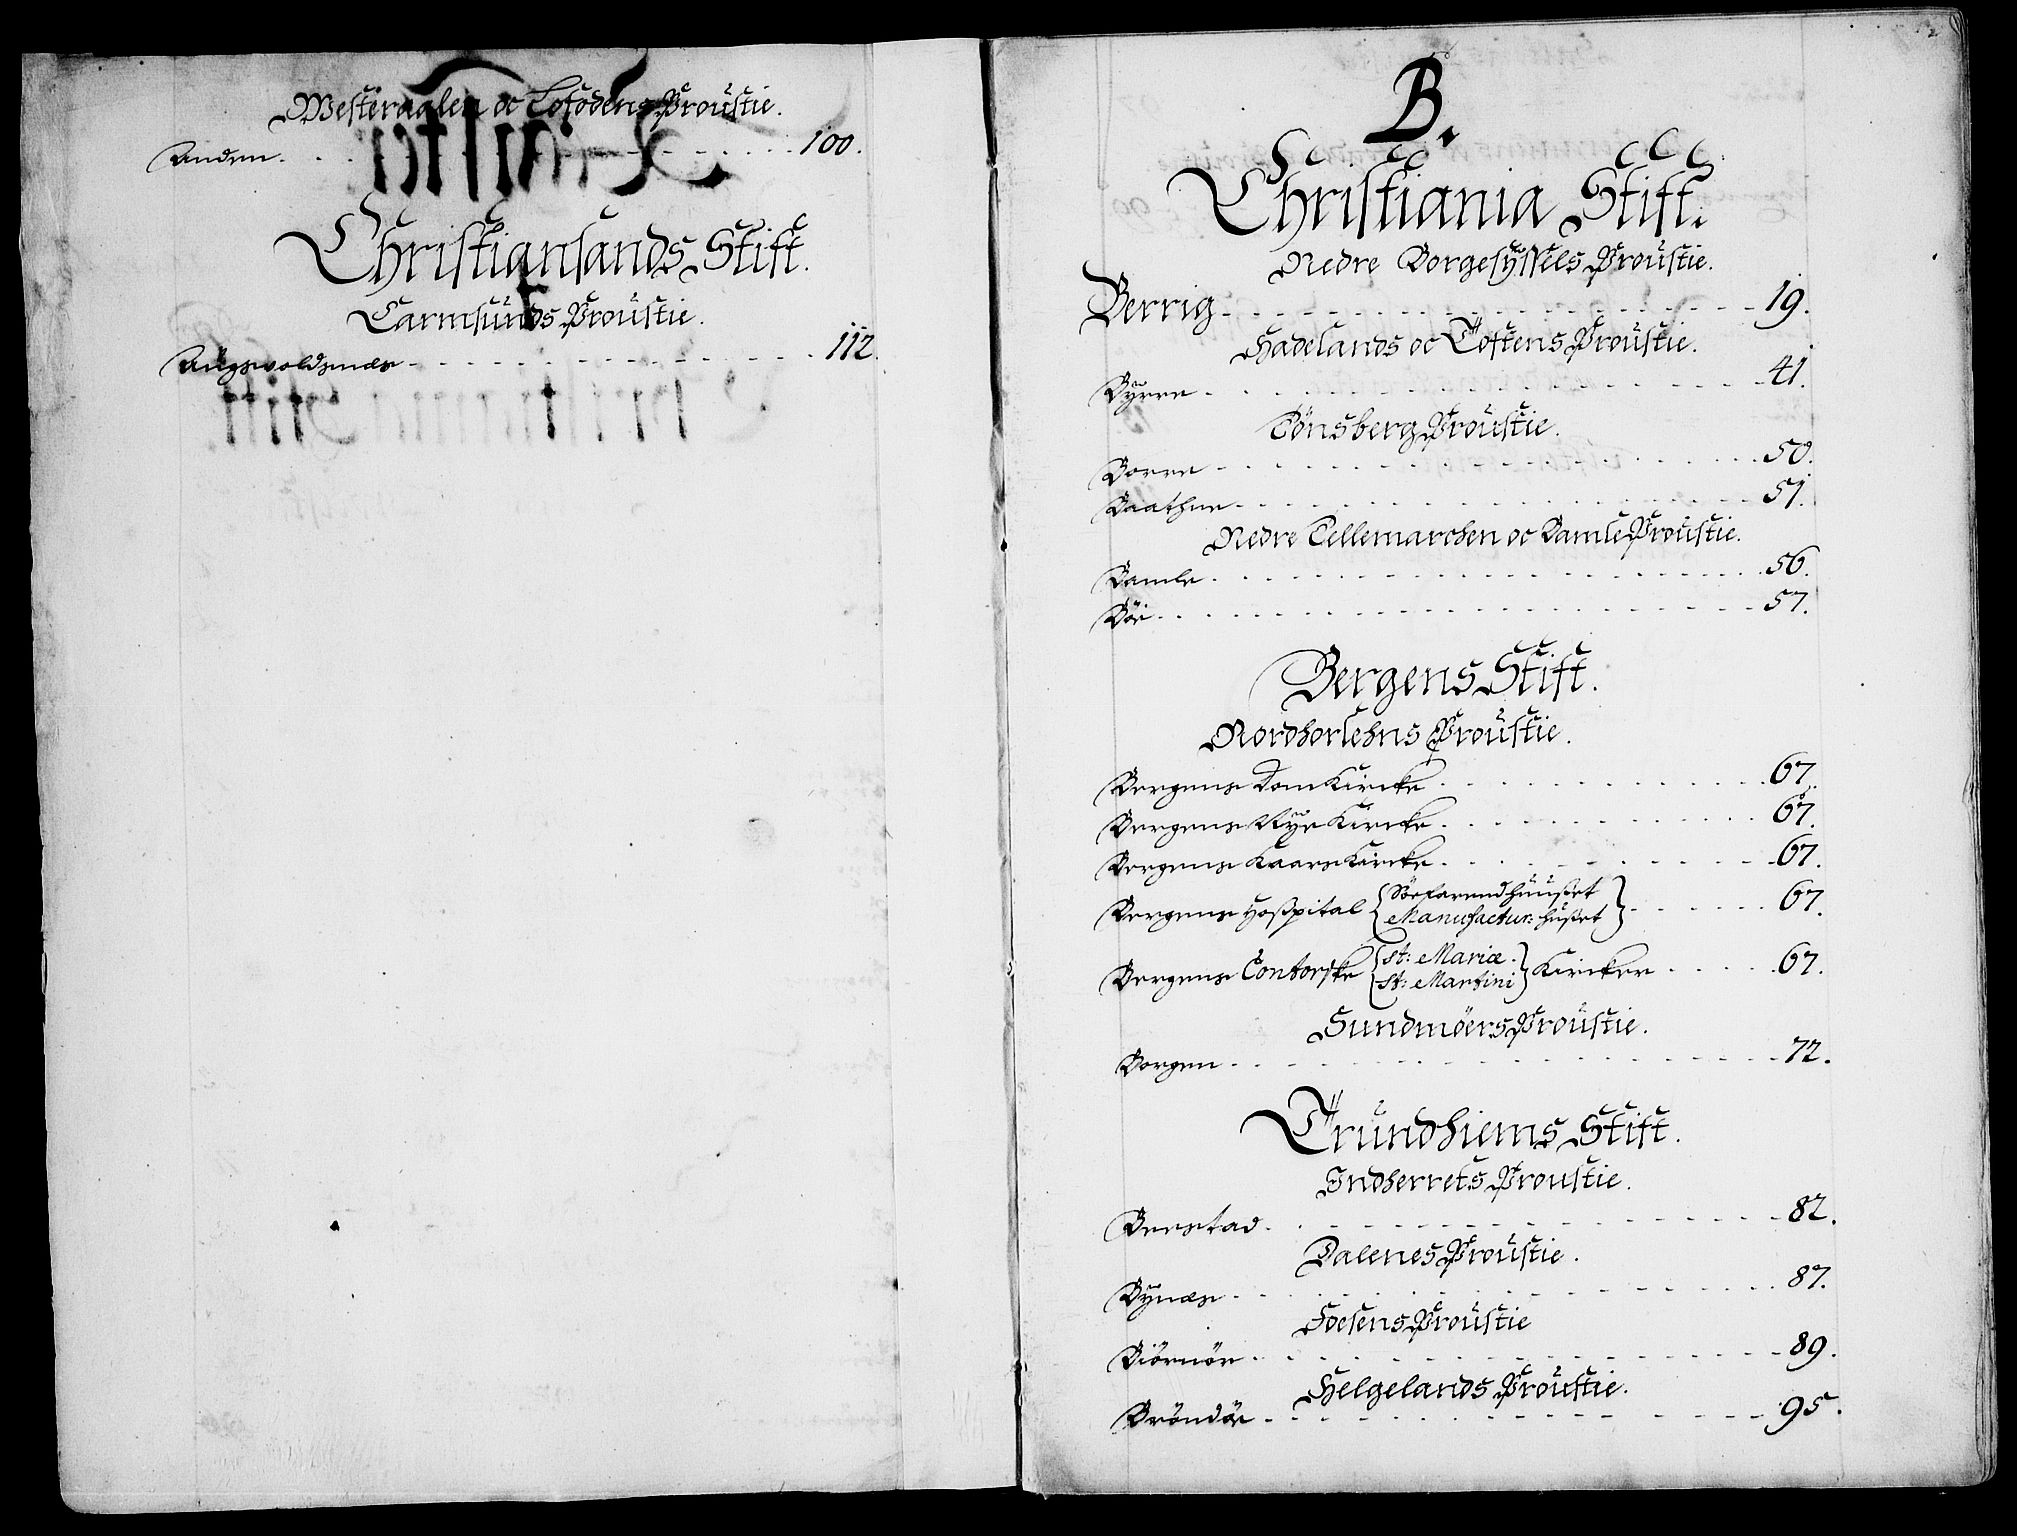 Westeraalen oc Lofodens Proustie.
Anden. 100.
Christiansands Stift.
Carmsunds Proustie.
Augswoldsnæs 112.
B.
Christiania Stift.
Nedre Borgesyssels Proustie.
Berrig 19.
Hadelands oc Toftens Proustie.
Byrre 41.
Tönsberg Proustie.
Borre 50.
Baathne 51.
Nedre Tellemarchen oc Bamle Proustie.
Bamle 56.
Böe 57.
Bergens Stift.
Nordhorlehns Proustie.
Bergens Dom Kircke 67.
Bergens Nye Kircke 67.
Bergens Kaars Kircke 67.
Bergens Hosspital { Söefarendhuusset
Manufactur: husset } 67.
Bergens Contorske { St: Mariæ.
St: Martini } Kircker 67.
Sundmöers Proustie.
Borgen 72.
Trundhiems Stift.
Indherrets Proustie.
Beestad 82.
Dalenes Proustie.
Bynæs 87.
Foesens Proustie
Biörnör 89.
Helgelands Proustie.
Bröndöe 95.